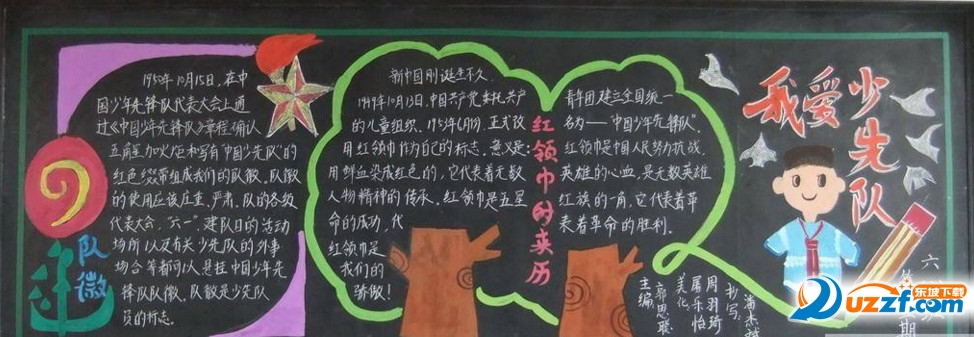 1950年10月15日，在中
国少年先锋队代表大会上通
过《中国少年先锋队》章程确认
五角星加火炬和写有"中国少先队"的
红色绶带组成我们的队徽，队徽
的使用应该庄重，严肃，队的各级
代表大会，"六一"，建队日的活动
场所以及有关少先队的外事
场合等都可以悬挂中国少年先
锋队队徽，队徽是少先队
员的标志。
队徽
新中国刚诞生不久，
1949年10月13日，中国共产党委托共产
的儿童组织，1953年6月份，正式改
用红领巾作为自己的标志，意义是：
用鲜血染成红色的，它代表着无数
人物精神的传承，红领巾是五星
命的成功，代
红领巾是
我们的
骄傲！
红领巾的来历
青年团建立全国统一
名为——"中国少年先锋队"。
红领巾是中国人民努力抗战，
英雄的心血，是无数英雄
红旗的一角，它代表着革
表着革命的胜利。
我爱少先队
主编：郭思聪
美化：屠乐怡
周羽琦
抄写：
东坡下载
uzzf.com